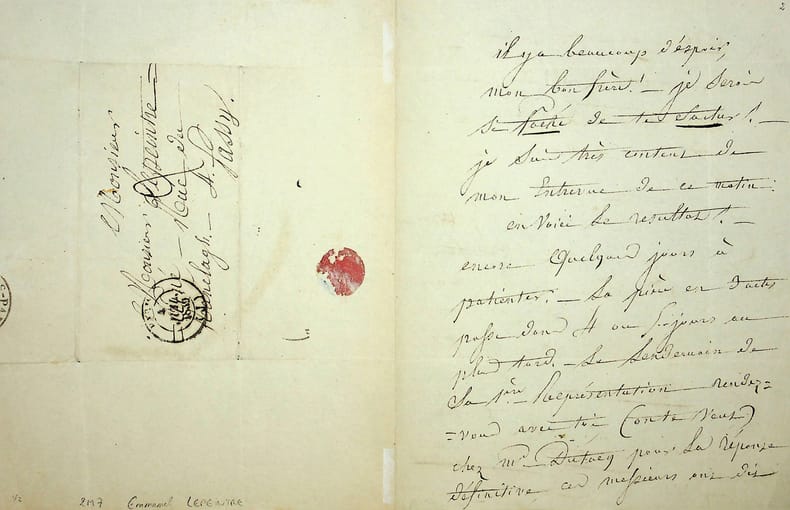 Monsieur
Monsieur Lepeintre
Rue du
Ranelagh. 4.
Passy.
2M7 Emmanuel LEPEINTRE
1/2
2
il y a beaucoup d'espoir,
mon bon frère! – je serois
si faché de te !
je suis très content de
mon Entrevue de ce matin:
en voici le resultat! –
encore quelques jours à
patienter. – La pièce en actes
passe dans 4 ou 5 jours au
plus tard. – Le Lendemain de
La 1ère Représentation rendez=
=vous avec toi (on te veut)
chez Mr Dutacq pour La réponse
définitive ces messieurs ont dit